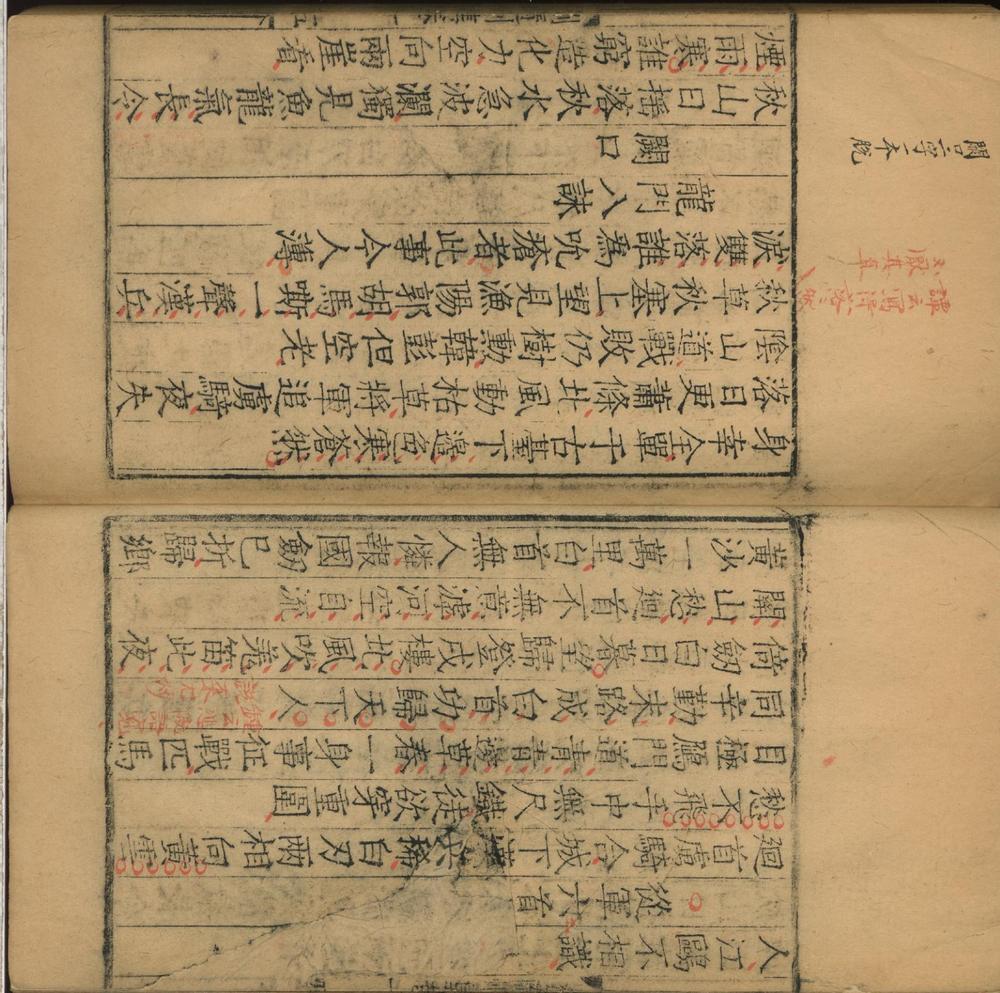 人江鷗不相識
從軍六首
迴首虜騎合城下漢兵稀白刃兩相向黃雲
愁不飛手中無尺鐵徒欲穿重圍
目極鴈門道青青邊草春一身事征戰匹馬
同辛勤末路成白首功歸天下人
倚劒白日暮望歸登戍樓北風吹羌笛此夜
關山愁迴首不無意滹河空自流
黃沙一萬里白首無人憐報國劒已折歸鄉
身幸全單于古臺下邊色寒蒼然
落日更蕭條北風動枯草將軍追虜騎夜失
陰山道戰敗仍樹勳韓彭但空老
秋草秋塞上望見漁陽郭胡馬嘶一聲漢兵
淚雙落誰為吮瘡者此事今人薄
龍門八詠
闕口
闕口二字一本脫
秋山日搖落秋水急波瀾獨見魚龍氣長令
煙雨寒誰窮造化力空向兩崖看